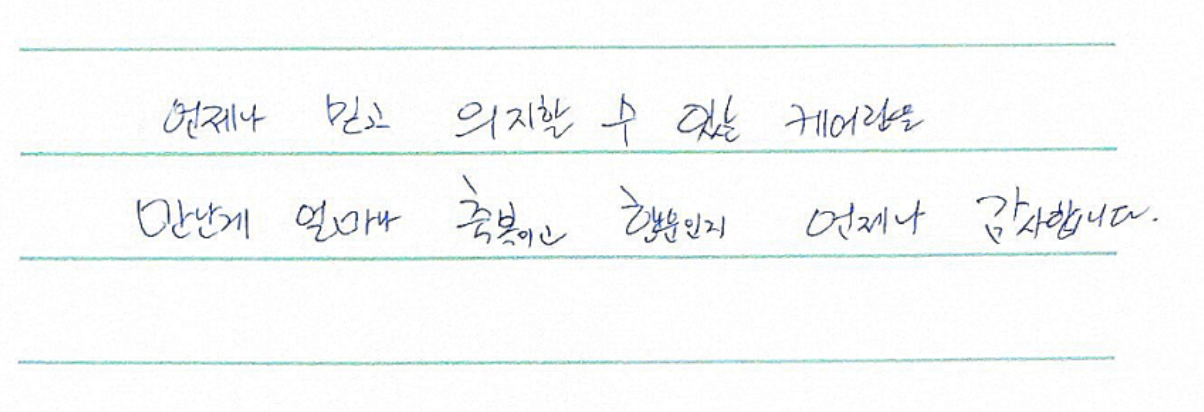 언제나 믿고 의지할 수 있는 케어랩을
만난게 얼마나 축복이고 행운인지 언제나 감사합니다.